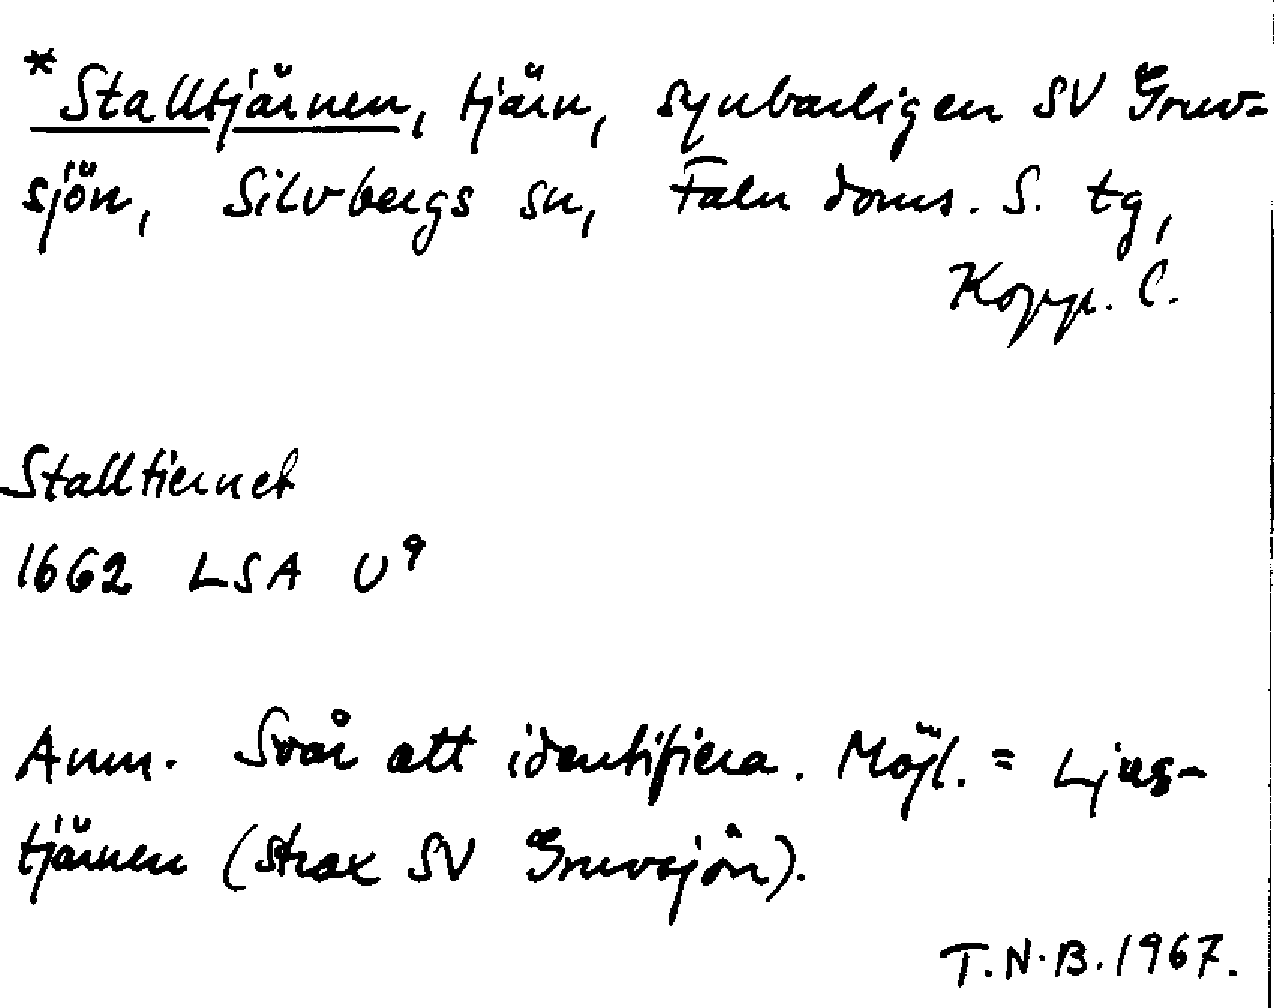 *Stalltjärnen, tjärn, synbarligen SV Gruv=
sjön, Silvbergs sn, Falu doms. S. tg,
Kopp. l.
Stalltiernet
1662 LSA U9
Anm. Svår att identifiera. Möjl. = Ljus-
tjärnen (strax SV Gruvsjön).
T.N.B. 1967.